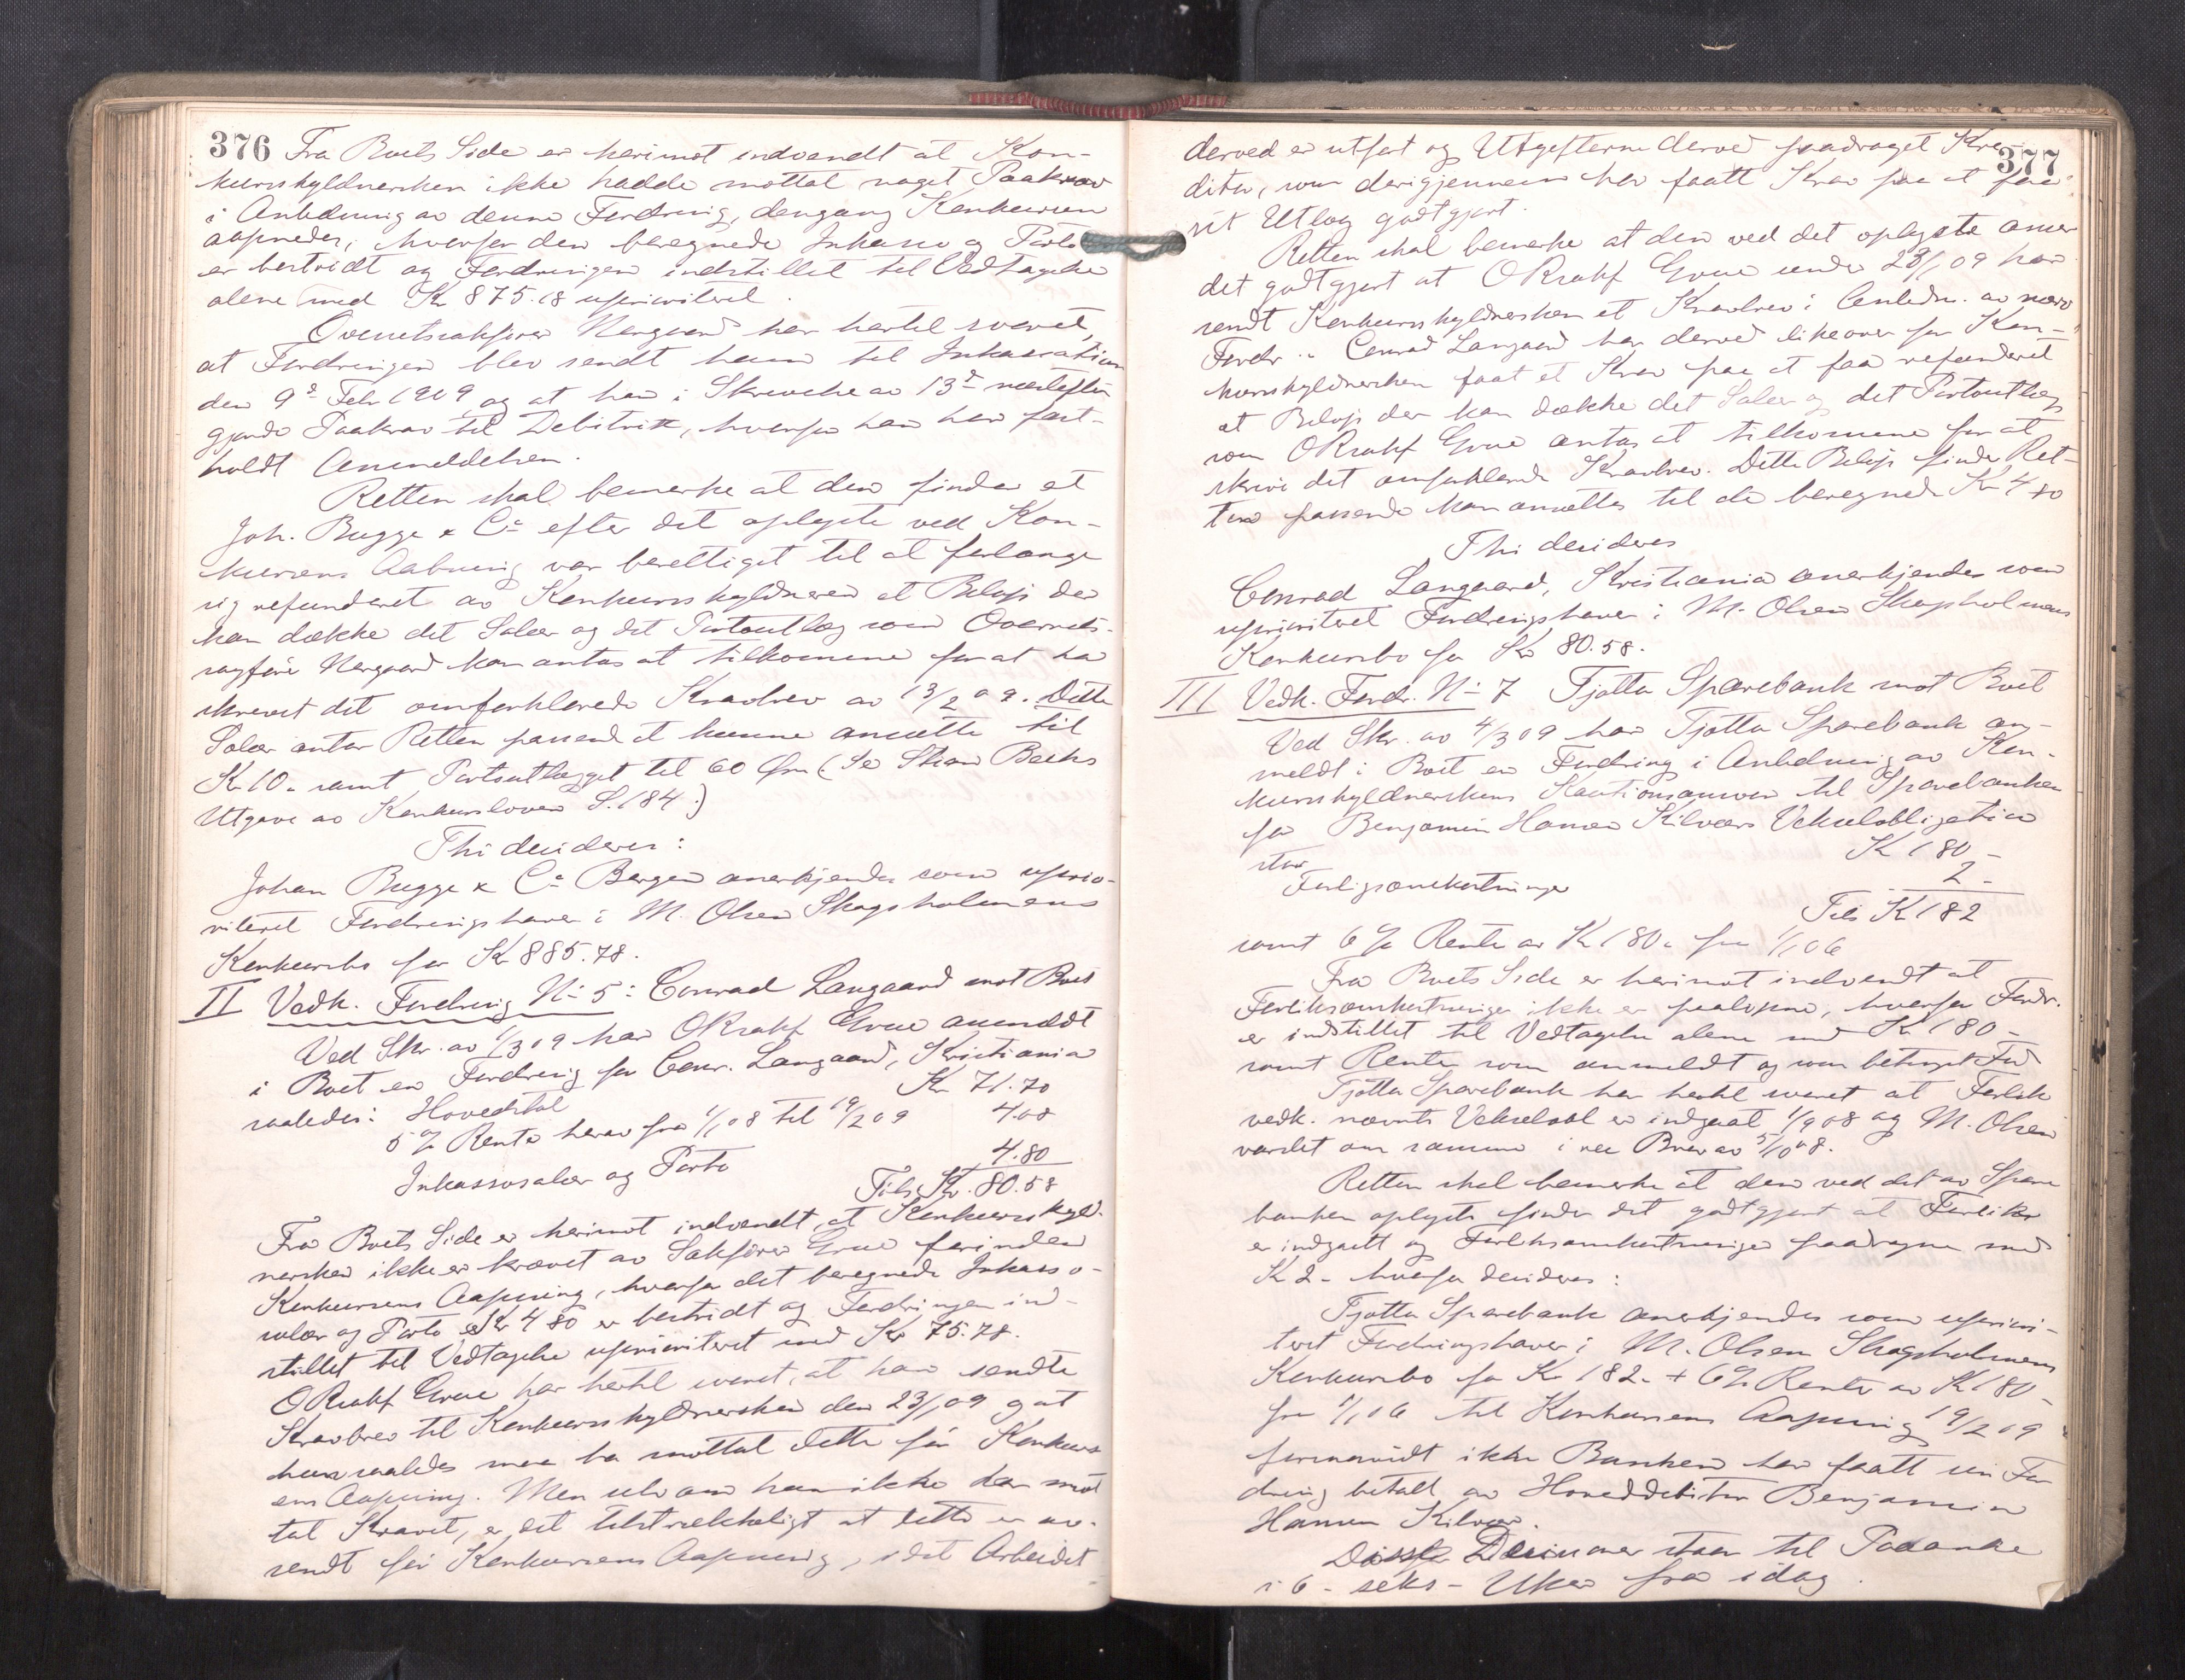 376
Fra Boets Side er herimot indvendt at Kon-
kursskyldnersken ikke hadde mottat noget Paakrav
i Anledning av denne Fordring, dengang Konkursen
aapnedes, hvorfor den beregnede Inkasso og Porto
er bestridt og Fordringen indstillet til Vedtagelse
alene med Kr 875.18 uprioritert.
Overretssakfører Nergaard har hertil svaret,
at Fordringen blev sendt ham til Inkassation
den 9de Febr 1909 og at han i Skrivelse av 13de næstefter
gjorde Paakrav til Debitrix, hvorfor han har fast-
holdt Anmeldelsen.
Retten skal bemerke at den finder at
Joh. Bugge & Co efter det oplyste ved Kon-
kursens Aabning var berettiget til at forlange
sig refunderet av Konkursskyldneren et Beløp der
kan dække det Salær og det Portoutlæg som Overrets-
sagfører Nergaard kan antas at tilkomme for at ha
skrevet det omforklarede Kravbrev av 13/2 09. Dette
Salær antar Retten passende at kunne ansætte til
Kr 10.- samt Portoutlægget til 60 Øre (Se Skian Bechs
Utgave av Konkursloven S. 184.)
Thi decideres:
Johan Bugge & Co Bergen anerkjendes som uprio-
riteret Fordringshaver i M. Olsen Skogsholmens
Konkursbo for Kr 885.78.
II Vedk. Fordring No 5: Conrad Langaard mot Boet
Ved Skr. av 1/3 09 har ORsakf Grue anmeldt
i Boet en Fordring for Conr. Langaard, Kristiania
saaledes: Hovedstol Kr 71.70
5 % Rente herav fra 1/1 08 til 19/2 09 4.08
Inkassosalær og Porto 4.80
Tils. Kr. 80.58
Fra Boets Side er herimot indvendt, at Konkursskyld-
nersken ikke er krævet av Sakfører Grue forinden
Konkursens Aapning, hvorfor det beregnede Inkasso-
salær og Porto Kr 4 80 er bestridt og Fordringen ind-
stillet til Vedtagelse uprioriteret med Kr 75.78.
ORsakf Grue har hertil svaret, at han sendte
Kravbrev til Konkursskyldnersken den 23/1 09 og at
hun saaledes maa ha mottat dette før Konkurs
ens Aapning. Men selv om hun ikke har mot
tat Kravet, er det tilstrækkeligt at dette er av-
sendt før Konkursens Aapning, idet Arbeidet
377
derved er utført og Utgifterne derved paadraget Kre-
ditor, som derigjennem har faatt Krav paa at faa
sit Utlæg godtgjort.
Retten skal bemerke at den ved det oplyste anser
det godtgjort at ORsakf Grue under 23/1 09 har
sendt Konkursskyldnersken et Kravbrev i Anledn. av nærv
Fordr.. Conrad Langaard har derved likeover for Kon-
kursskyldnersken faat et Krav paa at faa refunderet
et Beløp der kan dække det Salær og det Portoutlæg
som ORsakf Grue antas at tilkomme for at
skrive det omforklarede Kravbrev. Dette Beløp finder Ret-
ten passende kan ansættes til de beregnede Kr 4 80
Thi decideres
Conrad Langaard, Kristiania anerkjendes som
uprioriteret Fordringshaver i M. Olsen Skogsholmens
Konkursbo for Kr 80.58.
III Vedk. Fordr. No 7 Tjøtta Sparebank mot Boet
Ved Skr. av 4/3 09 har Tjøtta Sparebank an-
meldt i Boet en Fordring i Anledning av Kon-
kursskyldnerskens Kautionsansvar til Sparebanken
for Benjamin Hansen Kilværs Vekselobligation
stor Kr 180 -
Forligsomkostninger 2 -
Tils Kr 182
samt 6 % Rente av Kr 180.- fra 1/1 06
Fra Boets Side er herimot indvendt at
Forliksomkostninger ikke er paaløpne, hvorfor Fordr.
er indstillet til Vedtagelse alene med Kr 180 -
samt Renter som anmeldt og som betinget Ford
Tjøtta Sparebank har hertil svaret at Forlik
vedk. nævnte Vekselobl er indgaat 1/9 08 og M. Olsen
varslet om samme i rec Brev av 5/10 08.
Retten skal bemerke at den ved det av Spare
banken oplyste finder det godtgjort at Forliket
er indgaatt og Forliksomkostninger paadragne med
Kr 2 - hvorfor decideres:
Tjøtta Sparebank anerkjendes som upriori-
tert Fordringshaver i M. Olsen Skogsholmens
Konkursbo for Kr 182.- + 6 % Rente av Kr 180 -
fra 1/1 06 til Konkursens Aapning 19/2 09
forsaavidt ikke Banken har faatt sin For
dring betalt av Hoveddebitor Benjamin
Hansen Kilvær.
Disse Decisioner staar til Paaanke
i 6 - seks - Uker fra idag.